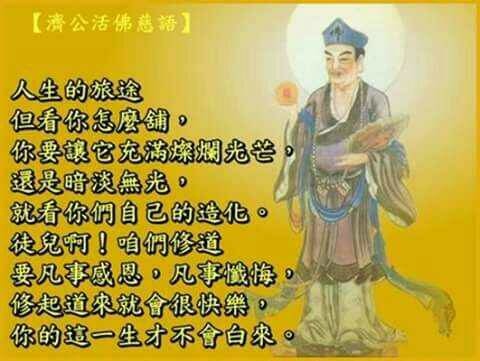 【濟公活佛慈語】
人生的旅途
但看你怎麼舖，
你要讓它充滿燦爛光芒，
還是暗淡無光，
就看你們自己的造化。
徒兒啊！咱們修道
要凡事感恩，凡事懺悔，
修起道來就會很快樂，
你的這一生才不會白來。
佛